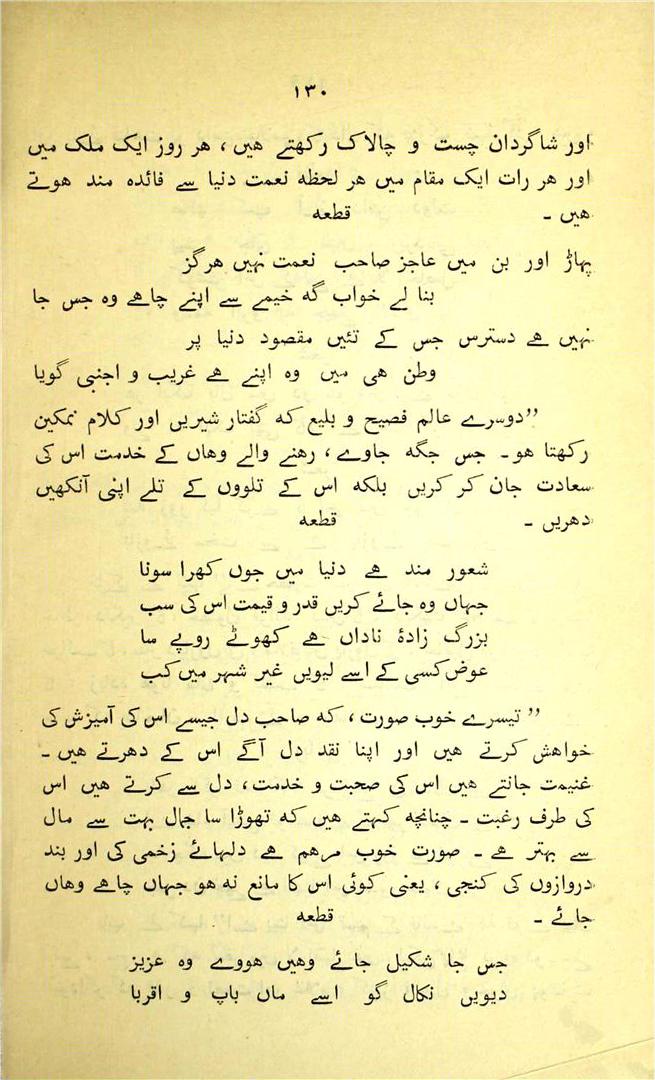 ۱۳۰
اور شاگردان چست و چالاک رکھتے ھیں ، ھر روز ایک ملک میں
اور ھر رات ایک مقام میں ھر لحظہ نعمت دنیا سے فائدہ مند ھوتے
ھیں ۔ قطعہ
پہاڑ اور بن میں عاجز صاحب نعمت نہیں ھرگز
بنا لے خواب گہ خیمے سے اپنے چاھے وہ جس جا
نہیں ھے دسترس جس کے تئیں مقصود دنیا پر
وطن ھی میں وہ اپنے ھے غریب و اجنبی گویا
”دوسرے عالم فصیح و بلیغ کہ گفتار شیریں اور کلام نمکین
رکھتا ھو۔ جس جگہ جاوے ، رھنے والے وھاں کے خدمت اس کی
سعادت جان کر کریں بلکہ اس کے تلووں کے تلے اپنی آنکھیں
دھریں ۔ قطعہ
شعور مند ھے دنیا میں جوں کھرا سونا
جہاں وہ جائے کریں قدر و قیمت اس کی سب
بزرگ زادۂ ناداں ھے کھوٹے روپے سا
عوض کسی کے اسے لیویں غیر شہر میں کب
”تیسرے خوب صورت ، کہ صاحب دل جیسے اس کی آمیزش کی
خواھش کرتے ھیں اور اپنا نقد دل آگے اس کے دھرتے ھیں ۔
غنیمت جانتے ھیں اس کی صحبت و خدمت ، دل سے کرتے ھیں اس
کی طرف رغبت ۔ چنانچہ کہتے ھیں کہ تھوڑا سا جمال بہت سے مال
سے بہتر ھے ۔ صورت خوب مرھم ھے دلہائے زخمی کی اور بند
دروازوں کی کنجی ، یعنی کوئی اس کا مانع نہ ھو جہاں چاھے وھاں
جائے ۔ قطعہ
جس جا شکیل جائے وھیں ھووے وہ عزیز
دیویں نکال گو اسے ماں باپ و اقربا